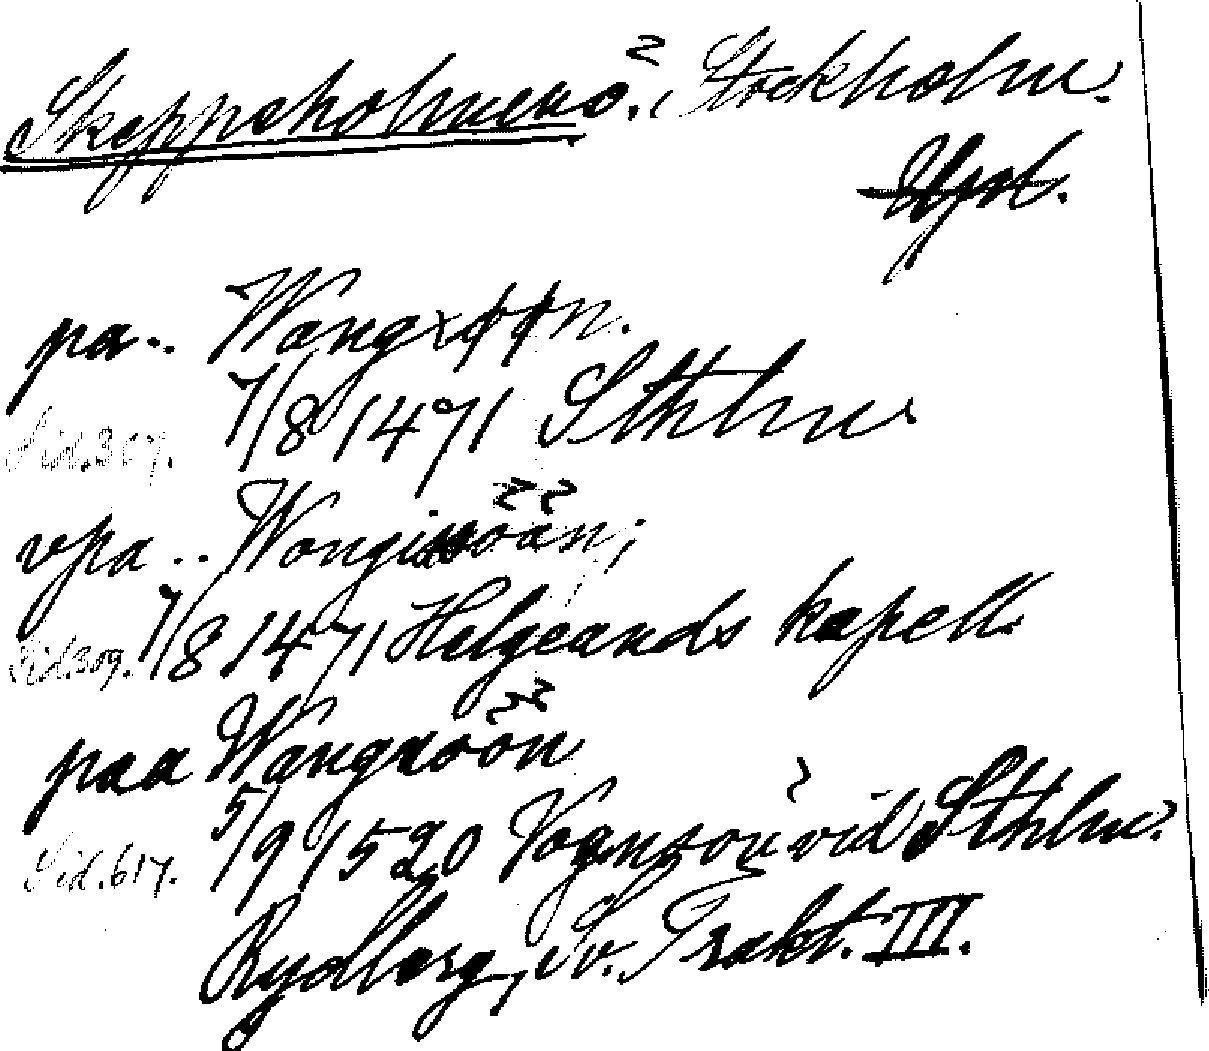 Skeppsholmen ö., Stockholm.
Upl.
pa.. Wangxøøn.
7/8 1471 Sthlm
Sid.307.
vpa .. Wongissöän;
7/8 1471 Helgeands kapell.
Sid.309.
paa Wangxöön
5/9 1520 Vognsön vid Sthlm.
Sid.617.
Rydberg, Sv. Trakt. III.